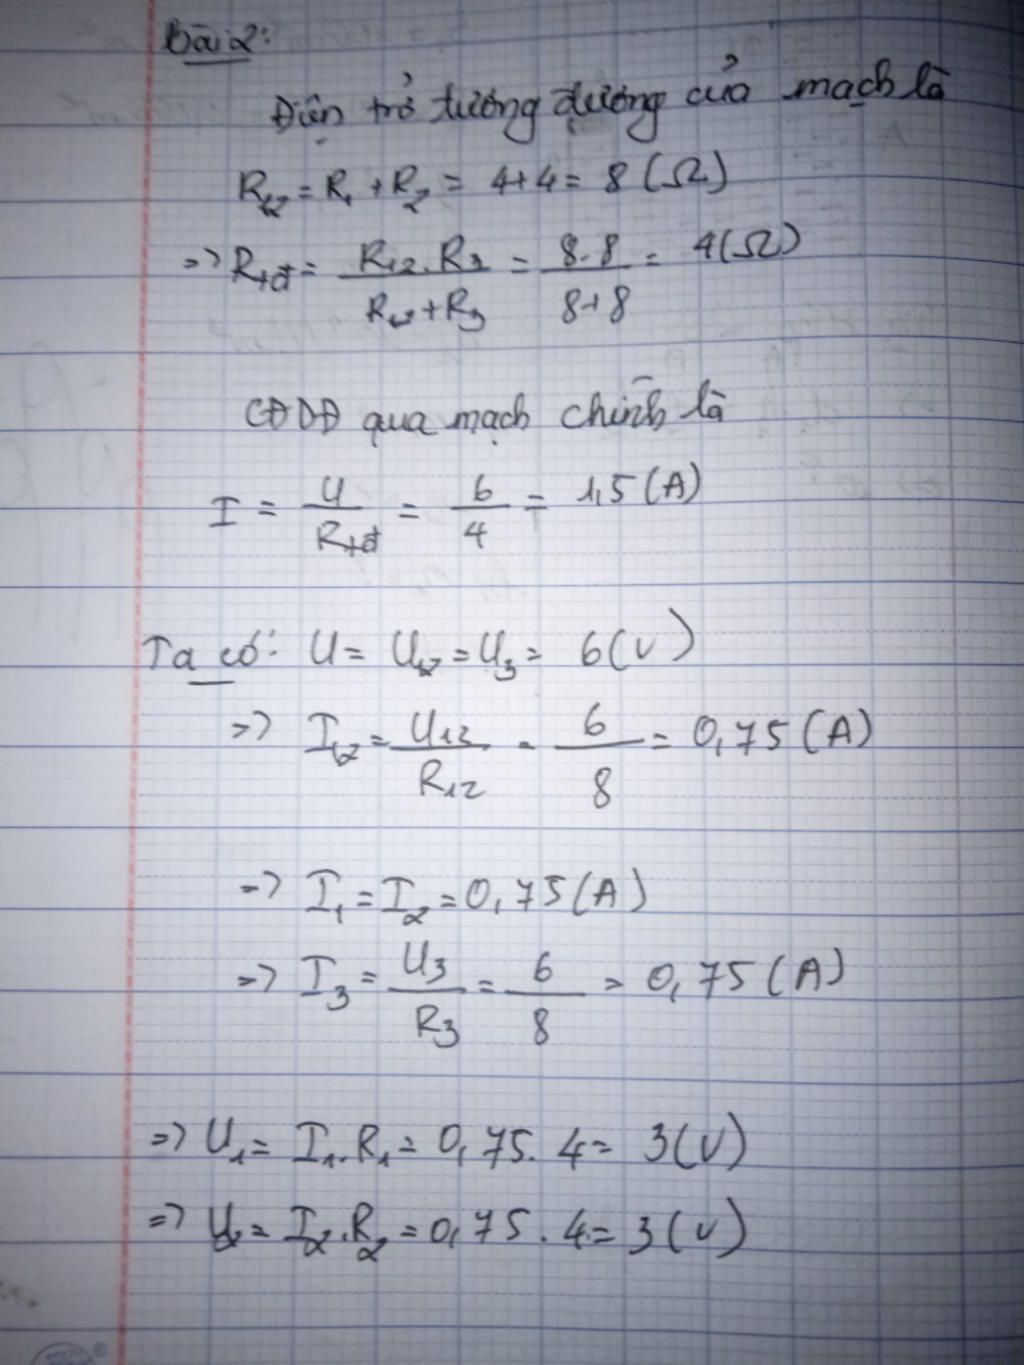 Bài 2:
Điện trở tương đương của mạch là
R12 = R1 + R2 = 4+4 = 8 (Ω)
=> Rtđ = R12.R3 / R12+R3 = 8.8 / 8+8 = 4(Ω)
CĐDĐ qua mạch chính là
I = U / Rtđ = 6 / 4 = 1,5 (A)
Ta có: U = U12 = U3 = 6(V)
=> I12 = U12 / R12 = 6 / 8 = 0,75 (A)
=> I1 = I2 = 0,75 (A)
=> I3 = U3 / R3 = 6 / 8 = 0,75 (A)
=> U1 = I1.R1 = 0,75. 4 = 3(V)
=> U2 = I2.R2 = 0,75 . 4 = 3 (V)